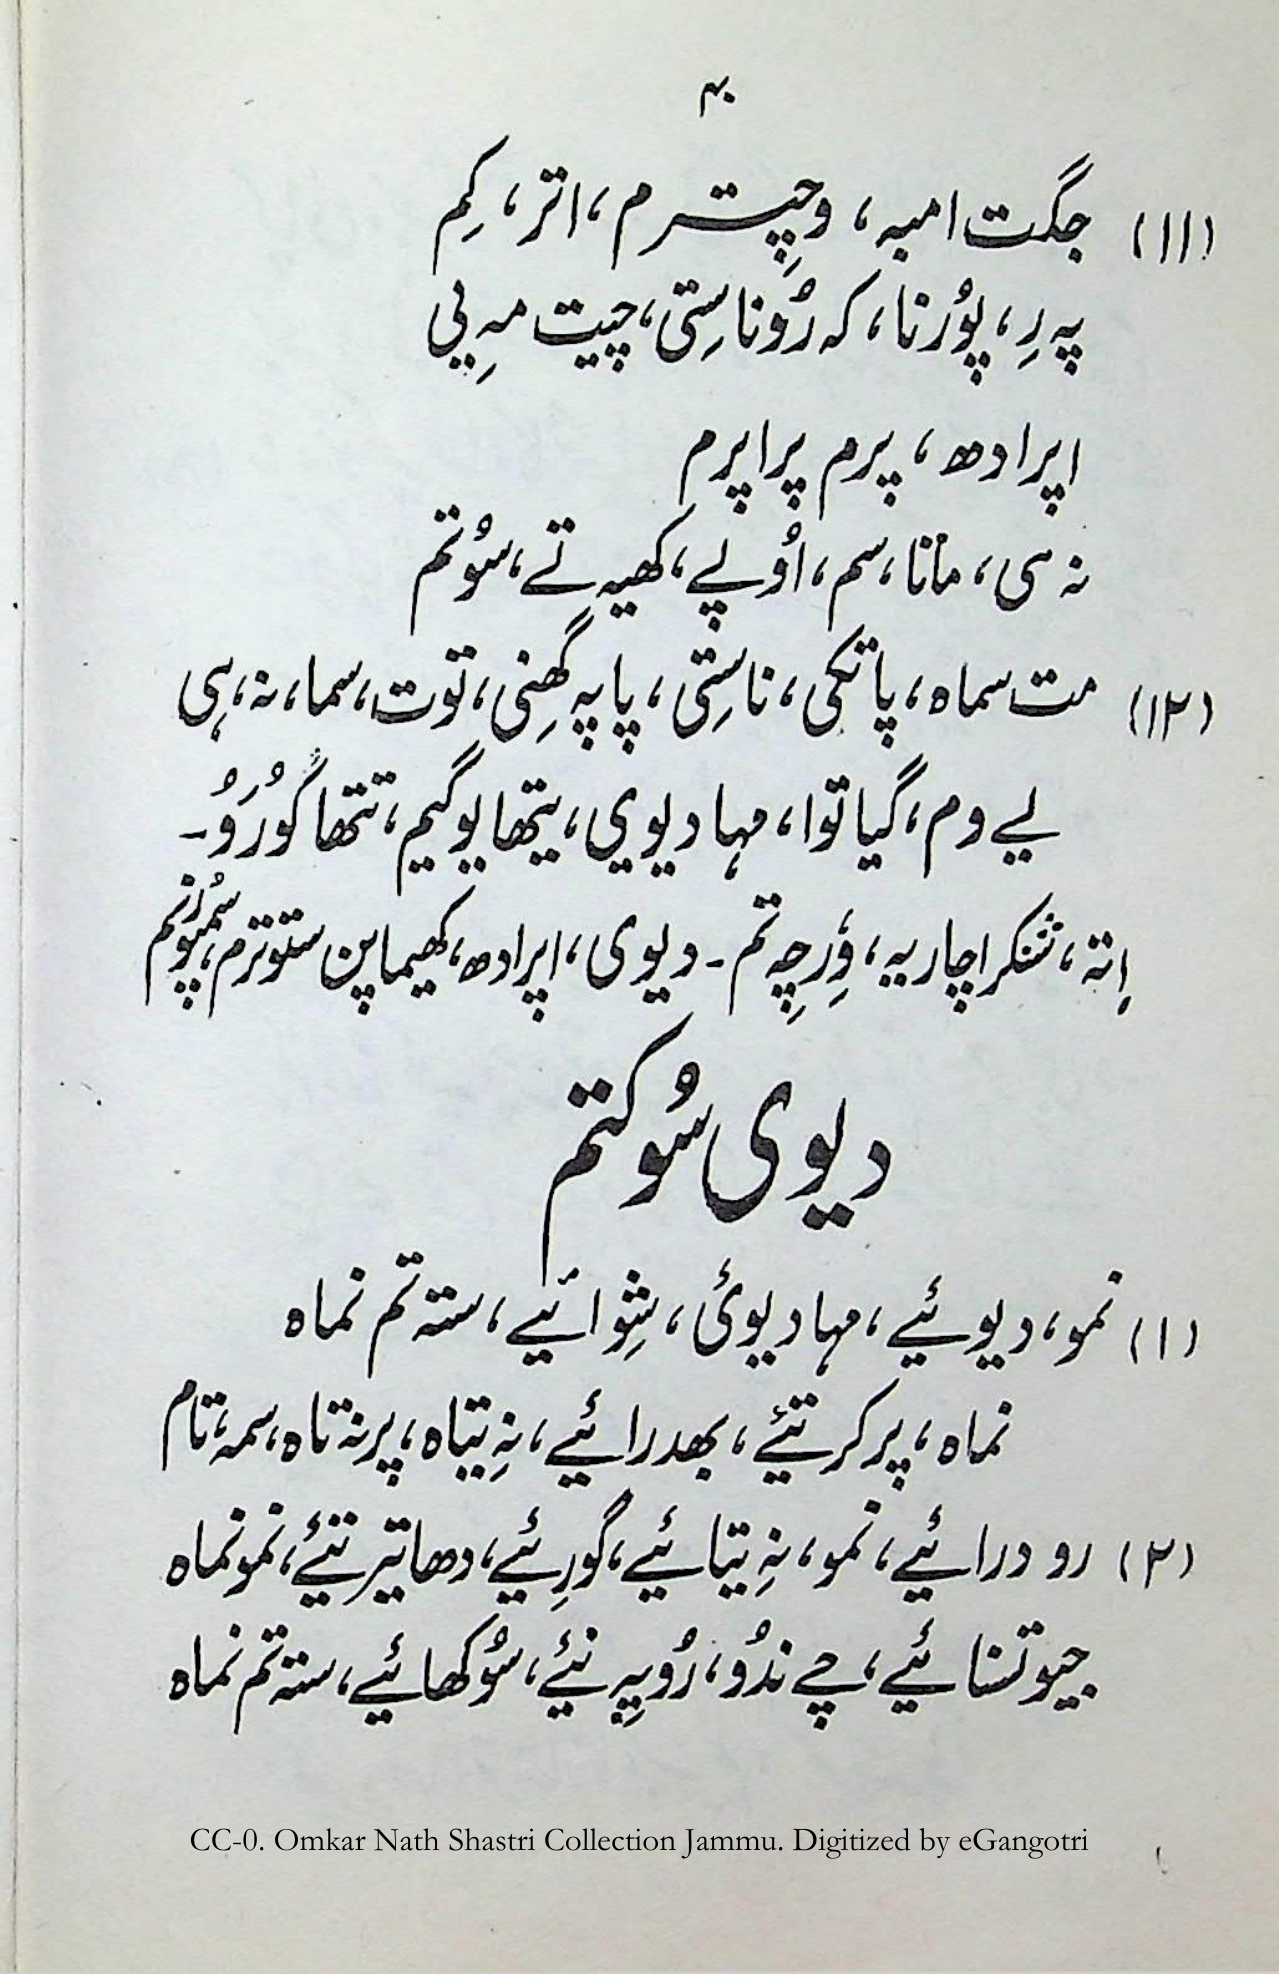 ۴۰
(۱۱) جگت امبہ، وِچِتسرم، اتر، کِم
پہ رِ، پوُرنا، کہ رُوناستِی، چیت مہِ یی
اپرادھ، پرم پراپرم
نہ سی، ماتا، سم، اوُپے، کھیہ تے، سوُتم
(۱۲) مت سماہ، پاتکی، ناستِی، پاپہ گھنِی، توت، سما، نہ، ہی
یے وم، گیاتوا، مہا دیوی، یتھا یوگیم، تتھا گوُرَوُ۔
اِتہ، شنکراچاریہ، وِرچِہ تم۔ دیوی، اپرادھ، کھیماپن ستوترم، سمپوُرنم
دیوی سوُکتم
(۱) نمو، دیوئیے، مہا دیوئ، شِوائیے، ستہ تم نماہ
نماہ، پرکرتیئے، بھدرائیے، نہِ یتاہ، پرنہ تاہ، سمہ، تام
(۲) رو درائیے، نمو، نہِ یتیائیے، گورِئیے، دھاتیرئیے، نمونماہ
جیوتسنائیے، چے ندُو، رُوپہِ نیئے، سوُکھائیے، ستہ تم نماہ
CC-0. Omkar Nath Shastri Collection Jammu. Digitized by eGangotri